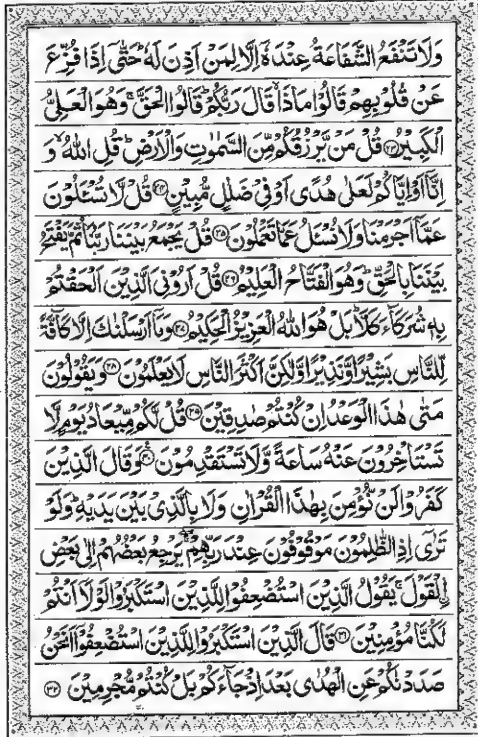 وَلَا تَنْفَعُ الشَّفَاعَةُ عِنْدَهٗۤ اِلَّا لِمَنْ اَذِنَ لَهٗ ؕ حَتّٰۤی اِذَا فُزِّعَ
عَنْ قُلُوْبِهِمْ قَالُوْا مَاذَا ۙ قَالَ رَبُّكُمْ ؕ قَالُوا الْحَقَّ ۚ وَهُوَ الْعَلِیُّ
الْكَبِیْرُ ﴿۲۳﴾ قُلْ مَنْ یَّرْزُقُكُمْ مِّنَ السَّمٰوٰتِ وَالْاَرْضِ ؕ قُلِ اللّٰهُ ۙ وَ
اِنَّاۤ اَوْ اِیَّاكُمْ لَعَلٰی هُدًی اَوْ فِیْ ضَلٰلٍ مُّبِیْنٍ ﴿۲۴﴾ قُلْ لَّا تُسْـَٔلُوْنَ
عَمَّاۤ اَجْرَمْنَا وَلَا نُسْـَٔلُ عَمَّا تَعْمَلُوْنَ ﴿۲۵﴾ قُلْ یَجْمَعُ بَیْنَنَا رَبُّنَا ثُمَّ یَفْتَحُ
بَیْنَنَا بِالْحَقِّ ؕ وَهُوَ الْفَتَّاحُ الْعَلِیْمُ ﴿۲۶﴾ قُلْ اَرُوْنِیَ الَّذِیْنَ اَلْحَقْتُمْ
بِهٖ شُرَكَآءَ كَلَّا ؕ بَلْ هُوَ اللّٰهُ الْعَزِیْزُ الْحَكِیْمُ ﴿۲۷﴾ وَمَاۤ اَرْسَلْنٰكَ اِلَّا كَآفَّةً
لِّلنَّاسِ بَشِیْرًا وَّنَذِیْرًا وَّلٰكِنَّ اَكْثَرَ النَّاسِ لَا یَعْلَمُوْنَ ﴿۲۸﴾ وَیَقُوْلُوْنَ
مَتٰی هٰذَا الْوَعْدُ اِنْ كُنْتُمْ صٰدِقِیْنَ ﴿۲۹﴾ قُلْ لَّكُمْ مِّیْعَادُ یَوْمٍ لَّا
تَسْتَاْخِرُوْنَ عَنْهُ سَاعَةً وَّلَا تَسْتَقْدِمُوْنَ ﴿۳۰﴾ وَقَالَ الَّذِیْنَ
كَفَرُوْا لَنْ نُّؤْمِنَ بِهٰذَا الْقُرْاٰنِ وَلَا بِالَّذِیْ بَیْنَ یَدَیْهِ ؕ وَلَوْ
تَرٰۤی اِذِ الظّٰلِمُوْنَ مَوْقُوْفُوْنَ عِنْدَ رَبِّهِمْ ۖۚ یَرْجِعُ بَعْضُهُمْ اِلٰی بَعْضِ
ِۨالْقَوْلَ ۚ یَقُوْلُ الَّذِیْنَ اسْتُضْعِفُوْا لِلَّذِیْنَ اسْتَكْبَرُوْا لَوْلَاۤ اَنْتُمْ
لَكُنَّا مُؤْمِنِیْنَ ﴿۳۱﴾ قَالَ الَّذِیْنَ اسْتَكْبَرُوْا لِلَّذِیْنَ اسْتُضْعِفُوْۤا اَنَحْنُ
صَدَدْنٰكُمْ عَنِ الْهُدٰی بَعْدَ اِذْ جَآءَكُمْ بَلْ كُنْتُمْ مُّجْرِمِیْنَ ﴿۳۲﴾